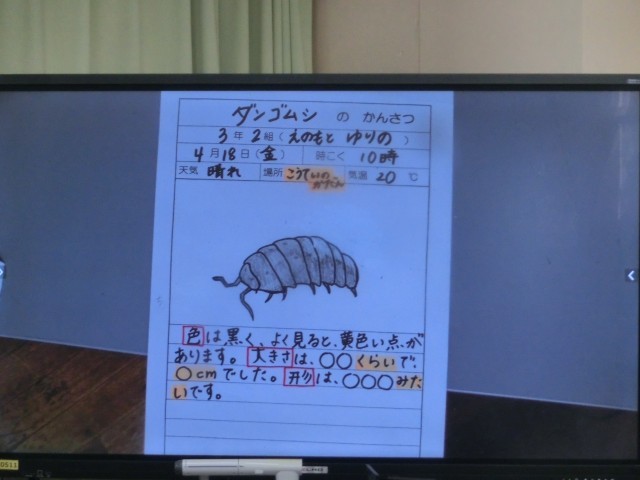 ダンゴムシ の かんさつ
3年 2組(えのもと ゆりの)
4月18日(金) 時こく 10時
天気 晴れ 場所 こうていの かだん 気温 20℃
色は黒く、よく見ると、黄色い点が
あります。大きさは、○○くらいで、
○cmでした。形は、○○○みた
いです。
0511